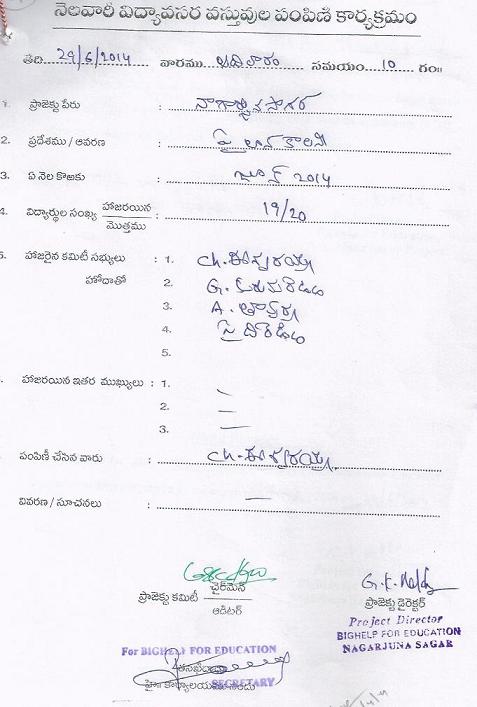 నెలవారీ విద్యావసర వస్తువుల పంపిణి కార్యక్రమం
తేది 29/6/2014 వారము ఆదివారం సమయం 10 గం॥
1. ప్రాజెక్టు పేరు : నాగార్జున సాగర్
2. ప్రదేశము / ఆవరణ : పైలాన్ కాలని
3. ఏ నెల కొఱకు : జూన్ 2014
4. విద్యార్థుల సంఖ్య హాజరయిన / మొత్తము : 19/20
హాజరైన కమిటీ సభ్యులు : 1. Ch. ఈశ్వరయ్య
హోదాతో 2. G.
3. A.
4.
5.
హాజరయిన ఇతర ముఖ్యులు : 1. —
2. —
3. —
పంపిణీ చేసిన వారు : Ch. ఈశ్వరయ్య
వివరణ / సూచనలు : —
ప్రాజెక్టు కమిటీ చైర్‌మెన్ / ఆడిటర్
G.K. Reddy
ప్రాజెక్టు డైరెక్టర్
Project Director
BIGHELP FOR EDUCATION
NAGARJUNA SAGAR
For BIGHELP FOR EDUCATION
హై॥ కార్యాలయము నందు
SECRETARY